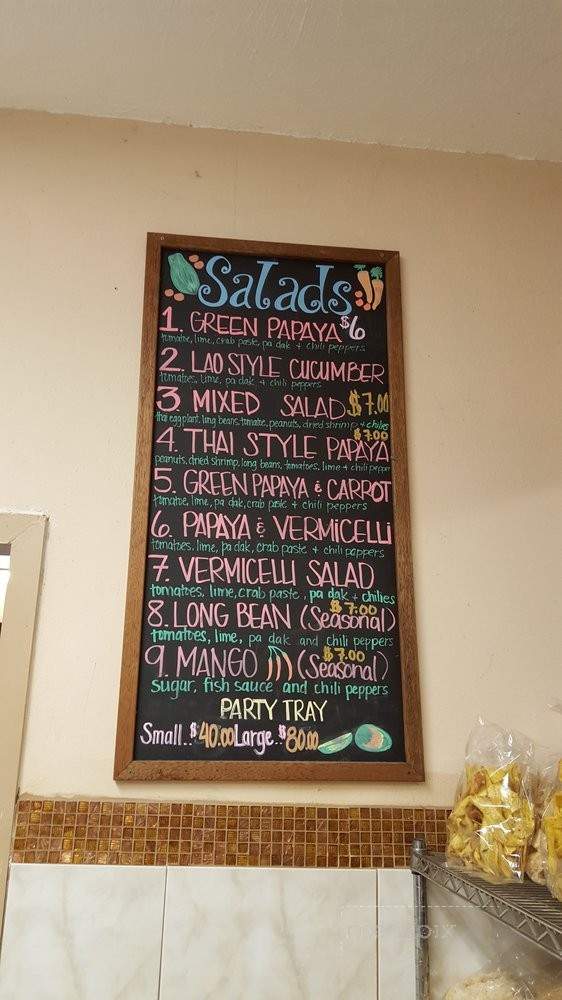 Salads
1. GREEN PAPAYA $6
tomatoe, lime, crab paste, pa dak + chili peppers
2. LAO STYLE CUCUMBER
tomatoes, lime, pa dak + chili peppers
3 MIXED SALAD $7.00
thai eggplant, long beans, tomatoe, peanuts, dried shrimp + chilies
$7.00
4. THAI STYLE PAPAYA
peanuts, dried shrimp, long beans, tomatoes, lime + chili pepper
5. GREEN PAPAYA & CARROT
tomatoe, lime, pa dak, crab paste + chili peppers
6. PAPAYA & VERMICELLI
tomatoes, lime, pa dak, crab paste + chili pappers
7. VERMICELLI SALAD
tomatoes, lime, crab paste, pa dak + chilies
$7.00
8. LONG BEAN (Seasonal)
tomatoes, lime, pa dak and chili peppers
$7.00
9. MANGO (Seasonal)
sugar, fish sauce and chili peppers
PARTY TRAY
Small..$40.00 Large..$80.00